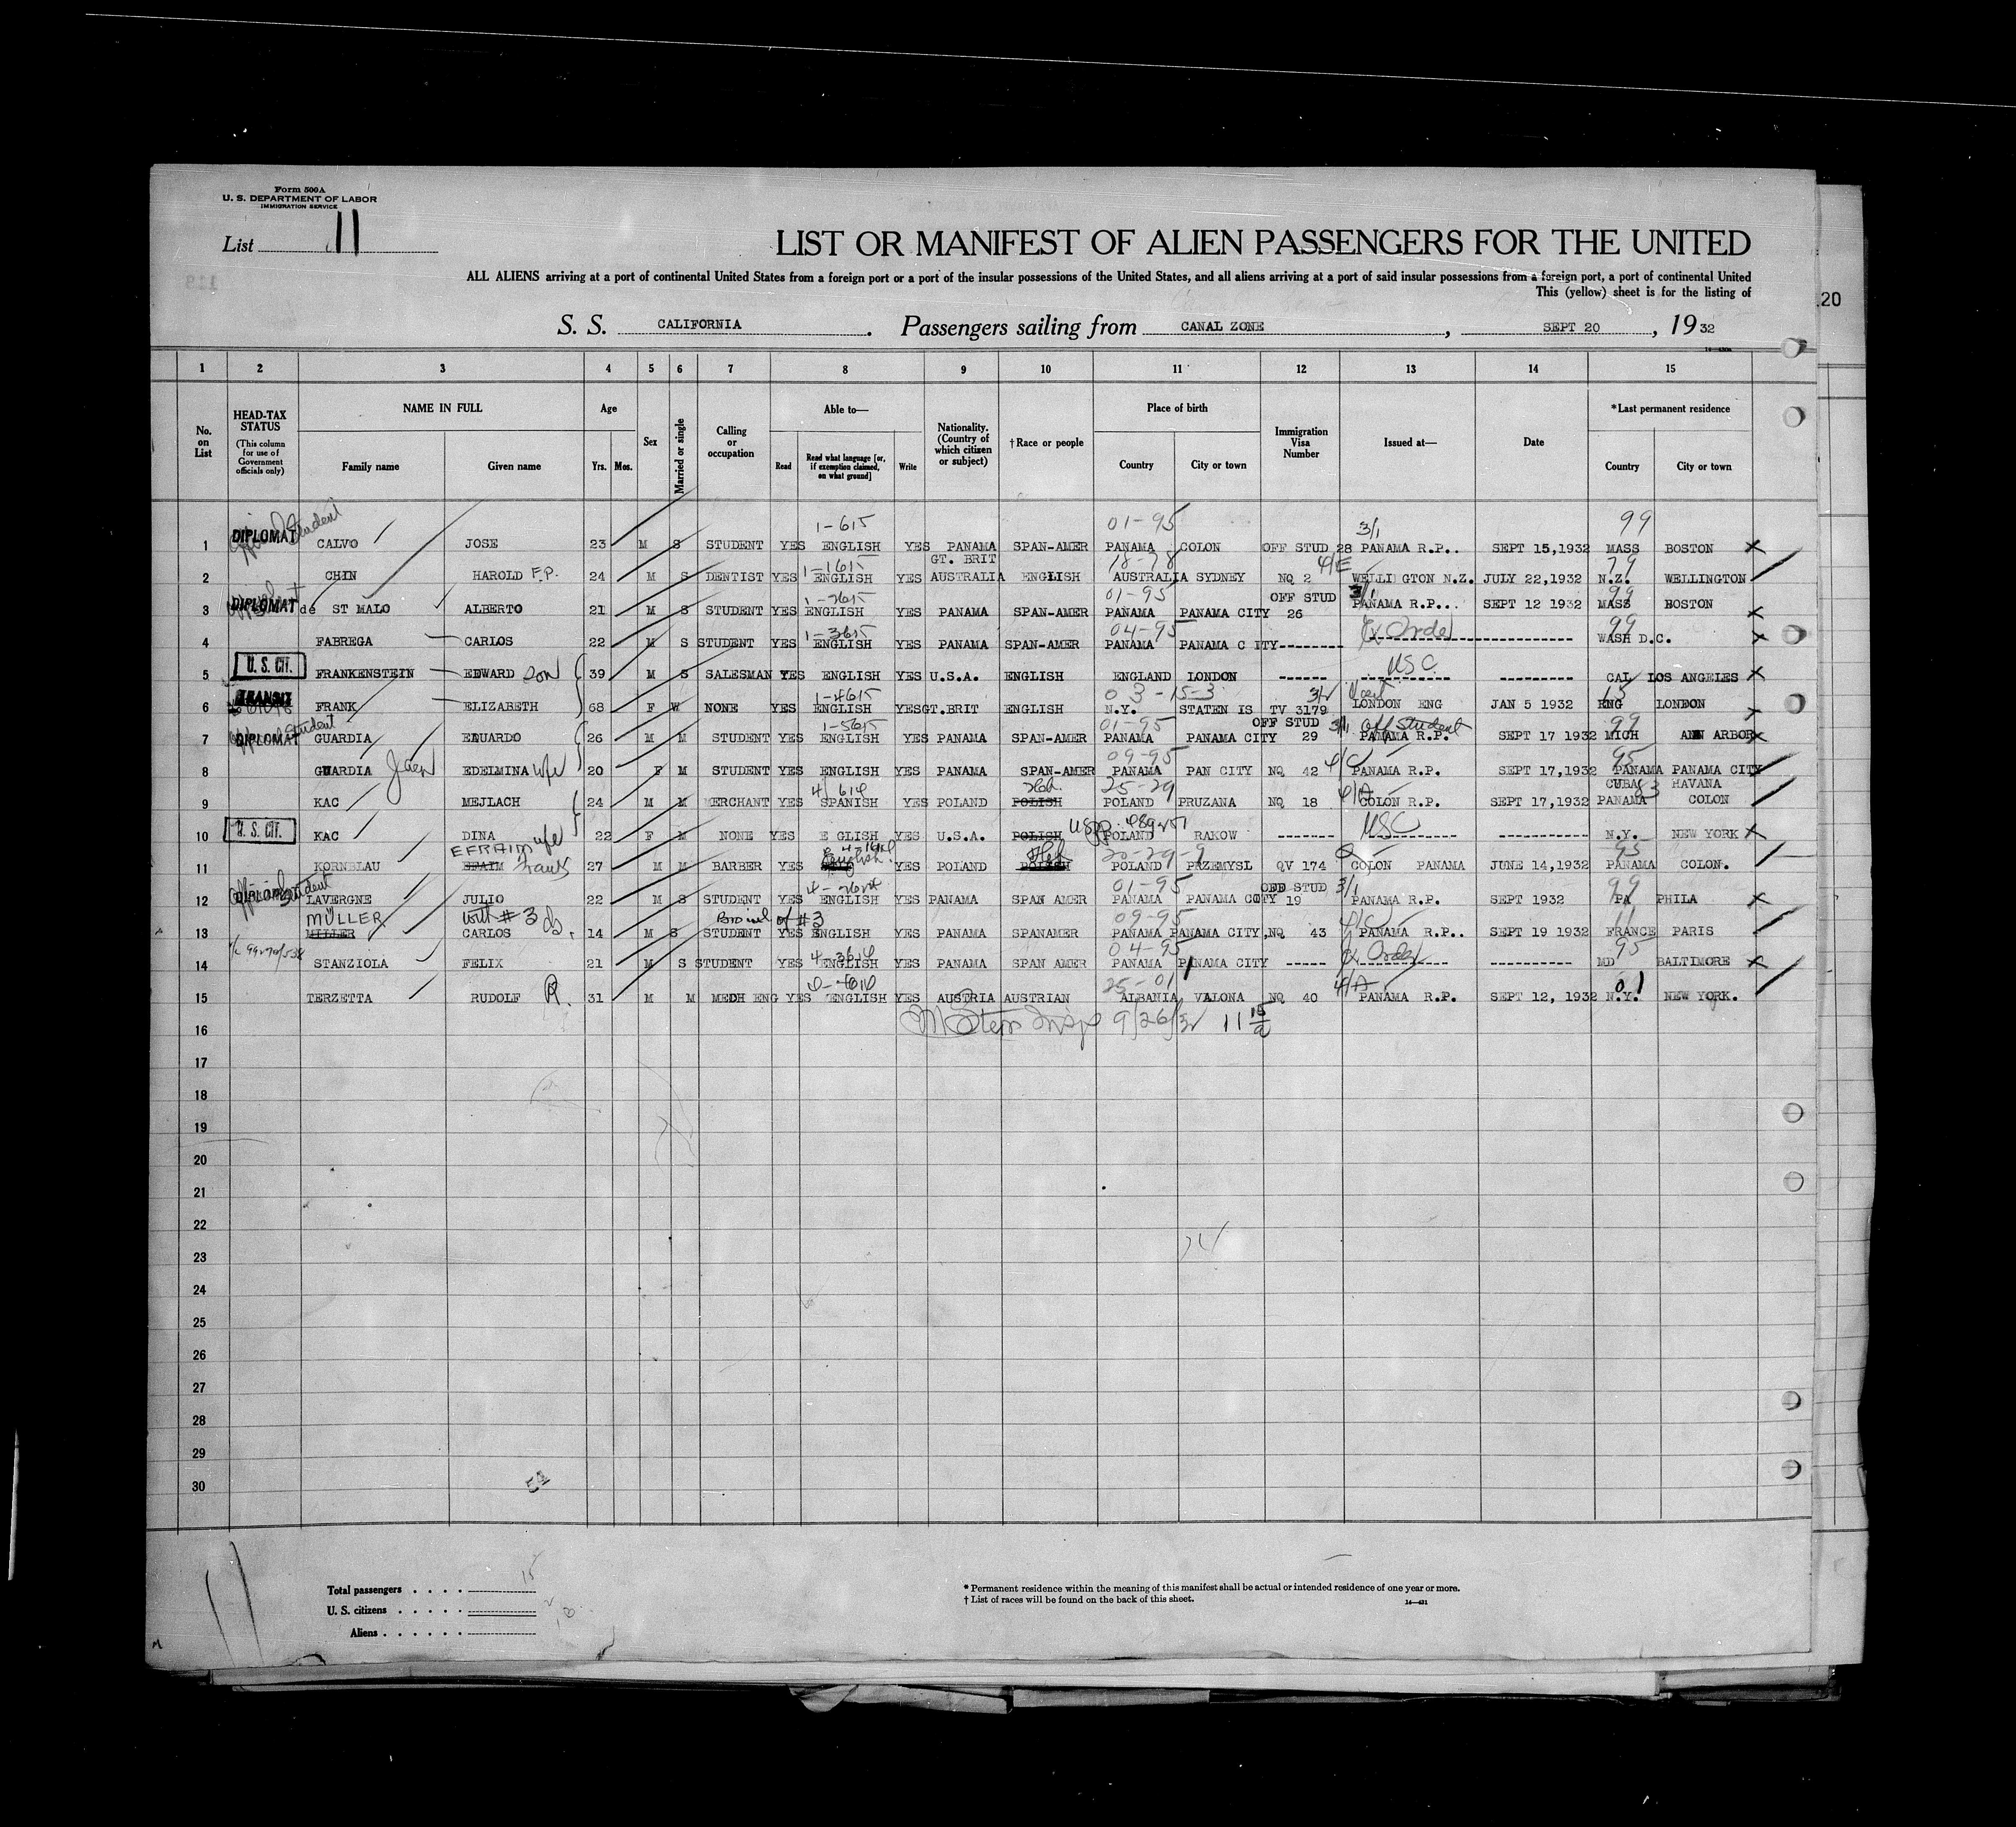 Form 500A
U. S. DEPARTMENT OF LABOR
IMMIGRATION SERVICE
List 11
LIST OR MANIFEST OF ALIEN PASSENGERS FOR THE UNITED
ALL ALIENS arriving at a port of continental United States from a foreign port or a port of the insular possessions of the United States, and all aliens arriving at a port of said insular possessions from a foreign port, a port of continental United
This (yellow) sheet is for the listing of
20
S. S. CALIFORNIA. Passengers sailing from CANAL ZONE, SEPT 20, 1932
1 2 3 4 5 6 7 8 9 10 11 12 13 14 15
No. on List
HEAD-TAX STATUS (This column for use of Government officials only)
NAME IN FULL Family name Given name
Age Yrs. Mos.
Sex
Married or single
Calling or occupation
Able to— Read Read what language [or, if exemption claimed, on what ground] Write
Nationality. (Country of which citizen or subject)
†Race or people
Place of birth Country City or town
Immigration Visa Number
Issued at—
Date
*Last permanent residence Country City or town
Student 1-615 01-95 3/1 99
1 DIPLOMAT CALVO JOSE 23 M S STUDENT YES ENGLISH YES PANAMA SPAN-AMER PANAMA COLON OFF STUD 28 PANAMA R.P.. SEPT 15,1932 MASS BOSTON X
1-1615 GT. BRIT 18-78 4/E 79
2 CHIN HAROLD F.P. 24 M S DENTIST YES ENGLISH YES AUSTRALIA ENGLISH AUSTRALIA SYDNEY NQ 2 WELLI GTON N.Z. JULY 22,1932 N.Z. WELLINGTON
1-2615 01-95 OFF STUD 3/1 99
3 DIPLOMAT de ST MALO ALBERTO 21 M S STUDENT YES ENGLISH YES PANAMA SPAN-AMER PANAMA PANAMA CITY 26 PANAMA R.P... SEPT 12 1932 MASS BOSTON X
1-3615 04-95 99
4 FABREGA CARLOS 22 M S STUDENT YES ENGLISH YES PANAMA SPAN-AMER PANAMA PANAMA C ITY-------- Ex Order ---------- WASH D.C. X
5 U. S. CIT. FRANKENSTEIN EDWARD Son 39 M S SALESMAN YES ENGLISH YES U.S.A. ENGLISH ENGLAND LONDON ------ USC --------- CAL LOS ANGELES X
1-4615 03-15-3 3/2 15
6 TRANSIT FRANK ELIZABETH 68 F W NONE YES ENGLISH YES GT.BRIT ENGLISH N.Y. STATEN IS TV 3179 LONDON ENG JAN 5 1932 ENG LONDON
Student 1-5615 01-95 OFF STUD 3/1 off Student 99
7 DIPLOMAT GUARDIA EDUARDO 26 M M STUDENT YES ENGLISH YES PANAMA SPAN-AMER PANAMA PANAMA CITY 29 PANAMA R.P. SEPT 17 1932 MICH ANN ARBOR X
09-95 4/C 95
8 GUARDIA Jaen EDELMINA wife 20 F M STUDENT YES ENGLISH YES PANAMA SPAN-AMER PANAMA PAN CITY NQ 42 PANAMA R.P. SEPT 17,1932 PANAMA PANAMA CITY
Heb. 25-29 4/A CUBA 83 HAVANA
9 KAC MEJLACH 24 M M MERCHANT YES SPANISH YES POLAND POLISH POLAND PRUZANA NQ 18 COLON R.P. SEPT 17,1932 PANAMA COLON
10 U. S. CIT. KAC DINA wife 22 F M NONE YES E GLISH YES U.S.A. POLISH USPP POLAND RAKOW ------- USC ---------- N.Y. NEW YORK X
EFRAIM English. Heb 95
11 KORNBLAU EFAIM 27 M M BARBER YES YES POLAND POLISH POLAND PRZEMYSL QV 174 COLON PANAMA JUNE 14,1932 PANAMA COLON.
Student 01-95 OFF STUD 3/1 99
12 DIPLOMAT LAVERGNE JULIO 22 M S STUDENT YES ENGLISH YES PANAMA SPAN AMER PANAMA PANAMA CITY 19 PANAMA R.P. SEPT 1932 PA PHILA X
MÜLLER with #3 of #3 09-95 4/C 11
13 MILLER CARLOS 14 M S STUDENT YES ENGLISH YES PANAMA SPANAMER PANAMA PANAMA CITY, NQ 43 PANAMA R.P.. SEPT 19 1932 FRANCE PARIS
04-95 95
14 STANZIOLA FELIX 21 M S STUDENT YES ENGLISH YES PANAMA SPAN AMER PANAMA PANAMA CITY ----- Ex Order ---------- MD BALTIMORE X
25-01 4/A 01
15 TERZETTA RUDOLF R. 31 M M MECH ENG YES ENGLISH YES AUSTRIA AUSTRIAN ALBANIA VALONA NQ 40 PANAMA R.P. SEPT 12, 1932 N.Y. NEW YORK.
16 Stern Insp 9/26/32 11 15/a
17
18
19
20
21
22
23
24
25
26
27
28
29
30
Total passengers . . . . 15
U. S. citizens . . . . . 2
Aliens . . . . . .
* Permanent residence within the meaning of this manifest shall be actual or intended residence of one year or more.
† List of races will be found on the back of this sheet.
14—421